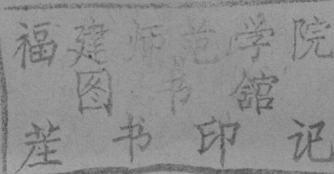 福建师范学院
图书舘
茬书印记